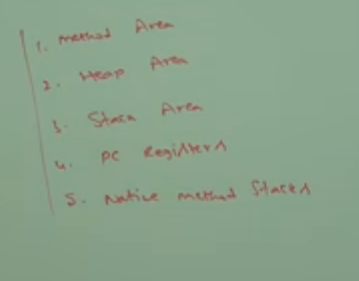 1. Method Area
2. Heap Area
3. Stack Area
4. PC Registers
5. Native method Stacks